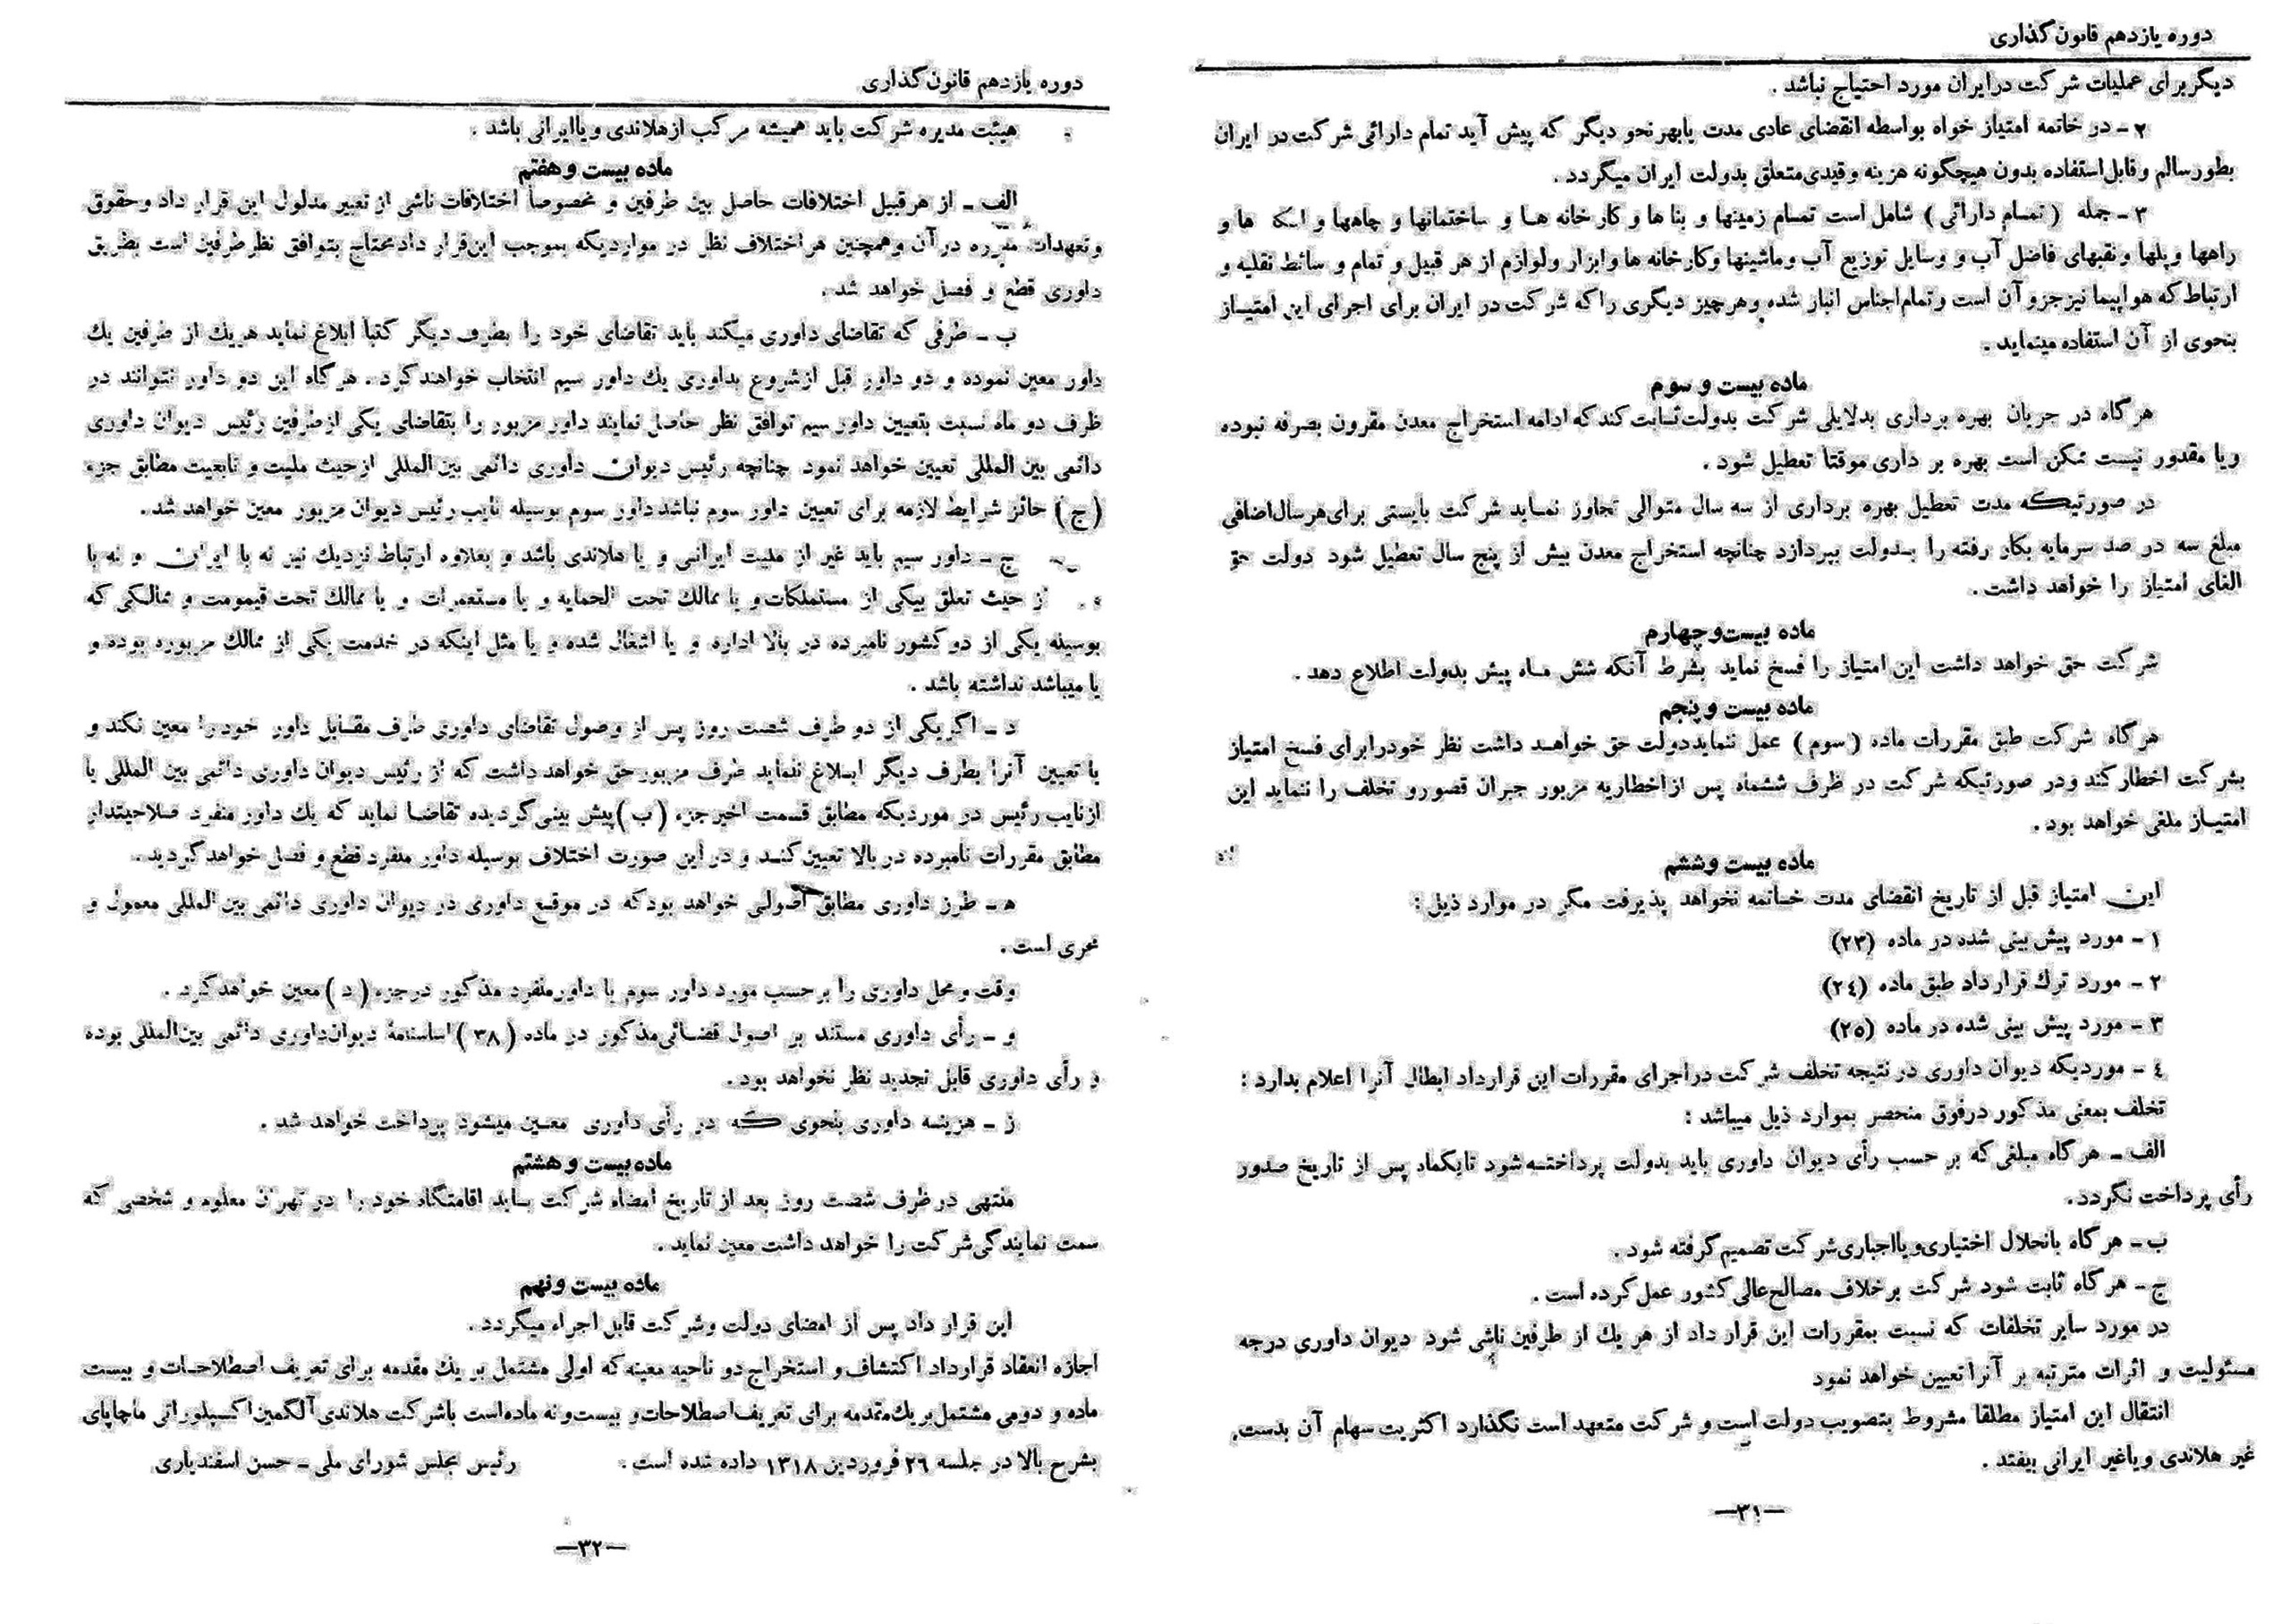 دوره یازدهم قانون‌گذاری
دیگر برای عملیات شرکت در ایران مورد احتیاج نباشد .
۲ ـ در خاتمه امتیاز خواه بواسطه انقضای عادی مدت یا بهر نحو دیگر که پیش آید تمام دارائی شرکت در ایران
بطور سالم و قابل استفاده بدون هیچگونه هزینه و قیدی متعلق بدولت ایران میگردد .
۳ ـ جمله (تمام دارائی) شامل است تمام زمینها و بنا ها و کارخانه ها و ساختمانها و چاهها و ها و
راهها و پلها و نقبهای فاضل آب و وسایل توزیع آب و ماشینها و کارخانه ها و ابزار و لوازم از هر قبیل و تمام وسائط نقلیه و
ارتباط که هواپیما نیز جزو آن است و تمام اجناس انبار شده و هر چیز دیگری را که شرکت در ایران برای اجرای این امتیاز
بنحوی از آن استفاده مینماید .
ماده بیست و سوم
هر گاه در جریان بهره برداری بدلایلی شرکت بدولت ثابت کند که ادامه استخراج معدن مقرون بصرفه نبوده
و یا مقدور نیست ممکن است بهره برداری موقتا تعطیل شود .
در صورتیکه مدت تعطیل بهره برداری از سه سال متوالی تجاوز نماید شرکت بایستی برای هر سال اضافی
مبلغ سه در صد سرمایه بکار رفته را بدولت بپردازد چنانچه استخراج معدن بیش از پنج سال تعطیل شود دولت حق
الغای امتیاز را خواهد داشت .
ماده بیست و چهارم
شرکت حق خواهد داشت این امتیاز را فسخ نماید بشرط آنکه شش ماه پیش بدولت اطلاع دهد .
ماده بیست و پنجم
هر گاه شرکت طبق مقررات ماده (سوم) عمل ننماید دولت حق خواهد داشت نظر خود را برای فسخ امتیاز
بشرکت اخطار کند و در صورتیکه شرکت در ظرف ششماه پس از اخطاریه مزبور جبران قصور و تخلف را ننماید این
امتیاز ملغی خواهد بود .
ماده بیست و ششم
این امتیاز قبل از تاریخ انقضای مدت خاتمه نخواهد پذیرفت مگر در موارد ذیل :
۱ ـ مورد پیش بینی شده در ماده (۲۳)
۲ ـ مورد ترک قرارداد طبق ماده (۲٤)
۳ ـ مورد پیش بینی شده در ماده (۲٥)
٤ ـ موردیکه دیوان داوری در نتیجه تخلف شرکت در اجرای مقررات این قرارداد ابطال آنرا اعلام بدارد :
تخلف بمعنی مذکور در فوق منحصر بموارد ذیل میباشد :
الف ـ هر گاه مبلغی که بر حسب رأی دیوان داوری باید بدولت پرداخته شود تا یکماه پس از تاریخ صدور
رأی پرداخت نگردد .
ب ـ هر گاه بانحلال اختیاری و یا اجباری شرکت تصمیم گرفته شود .
ج ـ هر گاه ثابت شود شرکت بر خلاف مصالح عالی کشور عمل کرده است .
در مورد سایر تخلفات که نسبت بمقررات این قرار داد از هر یک از طرفین ناشی شود دیوان داوری درجه
مسئولیت و اثرات مترتبه بر آنرا تعیین خواهد نمود
انتقال این امتیاز مطلقا مشروط بتصویب دولت است و شرکت متعهد است نگذارد اکثریت سهام آن بدست
غیر هلاندی و یا غیر ایرانی بیفتد .
—۳۱—
دوره یازدهم قانون‌گذاری
هیئت مدیره شرکت باید همیشه مرکب از هلاندی و یا ایرانی باشد .
ماده بیست و هفتم
الف ـ از هر قبیل اختلافات حاصل بین طرفین و مخصوصاً اختلافات ناشی از تعبیر مدلول این قرار داد و حقوق
و تعهدات مقرره در آن و همچنین هر اختلاف نظر در مواردیکه بموجب این قرار داد محتاج بتوافق نظر طرفین است بطریق
داوری قطع و فصل خواهد شد .
ب ـ طرفی که تقاضای داوری میکند باید تقاضای خود را بطرف دیگر کتباً ابلاغ نماید هر یک از طرفین یک
داور معین نموده و دو داور قبل از شروع بداوری یک داور سیم انتخاب خواهند کرد . هر گاه این دو داور نتوانند در
ظرف دو ماه نسبت بتعیین داور سیم توافق نظر حاصل نمایند داور مزبور را بتقاضای یکی از طرفین رئیس دیوان داوری
دائمی بین المللی تعیین خواهد نمود چنانچه رئیس دیوان داوری دائمی بین المللی از حیث ملیت و تابعیت مطابق جزء
(ج) حائز شرایط لازمه برای تعیین داور سوم نباشد داور سوم بوسیله نایب رئیس دیوان مزبور معین خواهد شد .
ج ـ داور سیم باید غیر از ملیت ایرانی و یا هلاندی باشد و بعلاوه ارتباط نزدیک نیز نه با ایران و نه با
از حیث تعلق بیکی از مستملکات و یا ممالک تحت الحمایه و یا مستعمرات و یا ممالک تحت قیمومت و ممالکی که
بوسیله یکی از دو کشور نامبرده در بالا اداره و یا اشغال شده و یا مثل اینکه در خدمت یکی از ممالک مزبوره بوده و
یا میباشد نداشته باشد .
د ـ اگر یکی از دو طرف شصت روز پس از وصول تقاضای داوری طرف مقابل داور خود را معین نکند و
یا تعیین آنرا بطرف دیگر ابلاغ ننماید طرف مزبور حق خواهد داشت که از رئیس دیوان داوری دائمی بین المللی یا
از نایب رئیس در موردیکه مطابق قسمت اخیر جزء (ب) پیش بینی گردیده تقاضا نماید که یک داور منفرد صلاحیتدار
مطابق مقررات نامبرده در بالا تعیین کند و در این صورت اختلاف بوسیله داور منفرد قطع و فصل خواهد گردید .
ه ـ طرز داوری مطابق اصولی خواهد بود که در موقع داوری در دیوان داوری دائمی بین المللی معمول و
مجری است .
وقت و محل داوری را بر حسب مورد داور سوم یا داور منفرد مذکور در جزء (د) معین خواهد کرد .
و ـ رأی داوری مستند بر اصول قضائی مذکور در ماده (۳۸) اساسنامهٔ دیوان داوری دائمی بین‌المللی بوده
و رأی داوری قابل تجدید نظر نخواهد بود .
ز ـ هزینه داوری بنحوی که در رأی داوری معین میشود پرداخت خواهد شد .
ماده بیست و هشتم
منتهی در ظرف شصت روز بعد از تاریخ امضاء شرکت باید اقامتگاه خود را در تهران معلوم و شخصی که
سمت نمایندگی شرکت را خواهد داشت معین نماید .
ماده بیست و نهم
این قرار داد پس از امضای دولت و شرکت قابل اجراء میگردد .
اجازه انعقاد قرارداد اکتشاف و استخراج دو ناحیه معینه که اولی مشتمل بر یک مقدمه برای تعریف اصطلاحات و بیست
ماده و دومی مشتمل بر یک مقدمه برای تعریف اصطلاحات و بیست و نه ماده است با شرکت هلاندی آلگمین اکسپلوراتی ماچاپای
بشرح بالا در جلسه ۲٦ فروردین ۱۳۱۸ داده شده است . رئیس مجلس شورای ملی ـ حسن اسفندیاری
—۳۲—